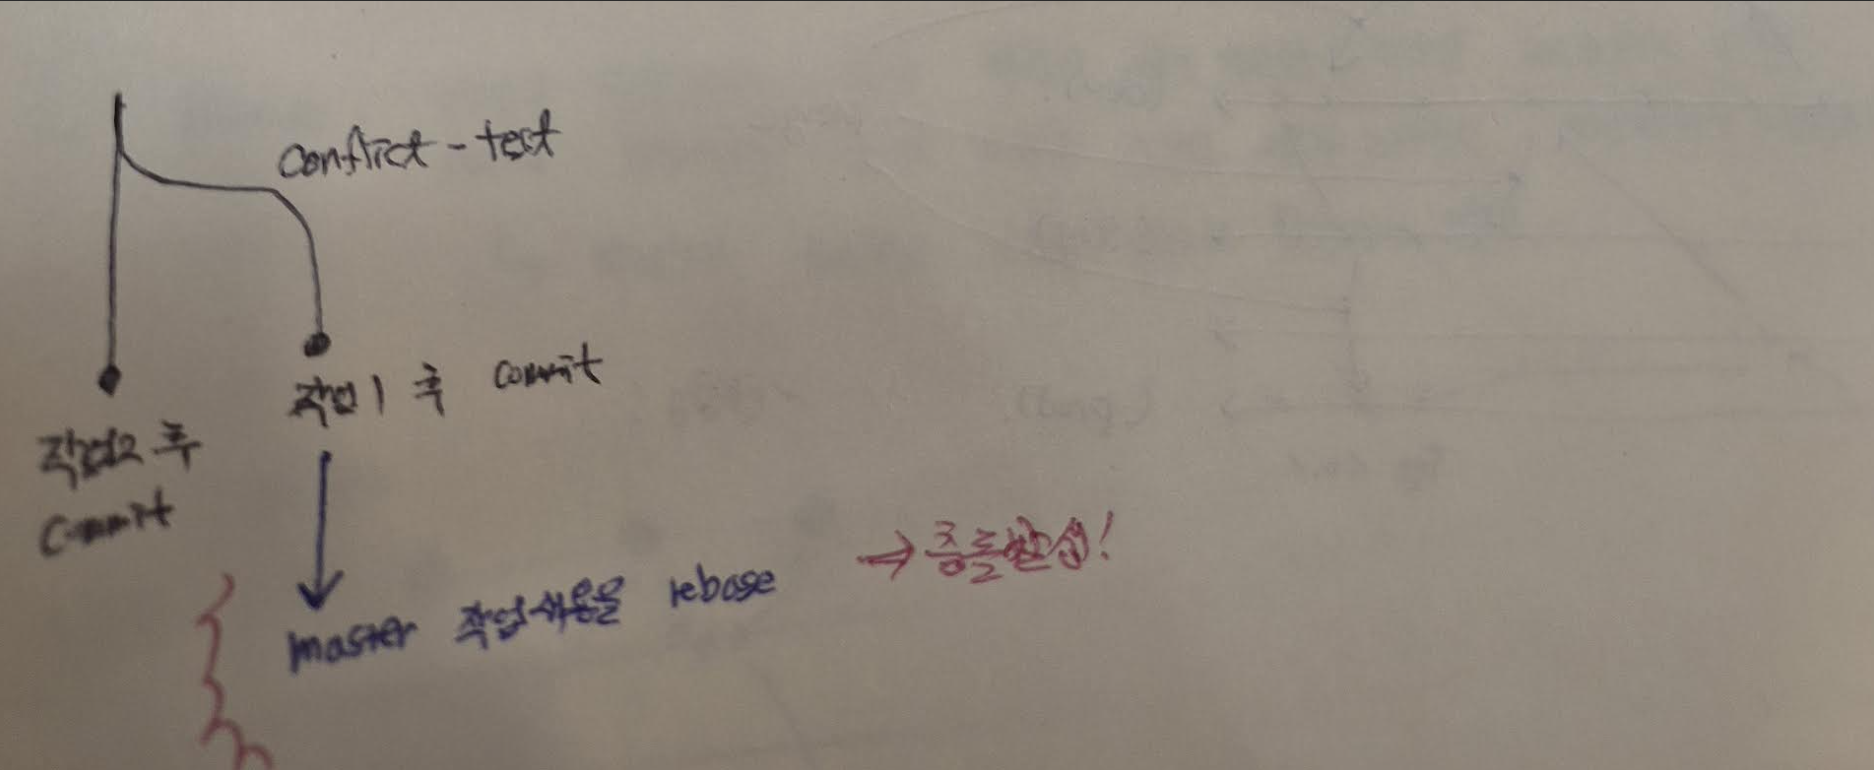 conflict - test
작업1 후 commit
작업2 후
commit
master 작업내용을 rebase → 충돌발생!